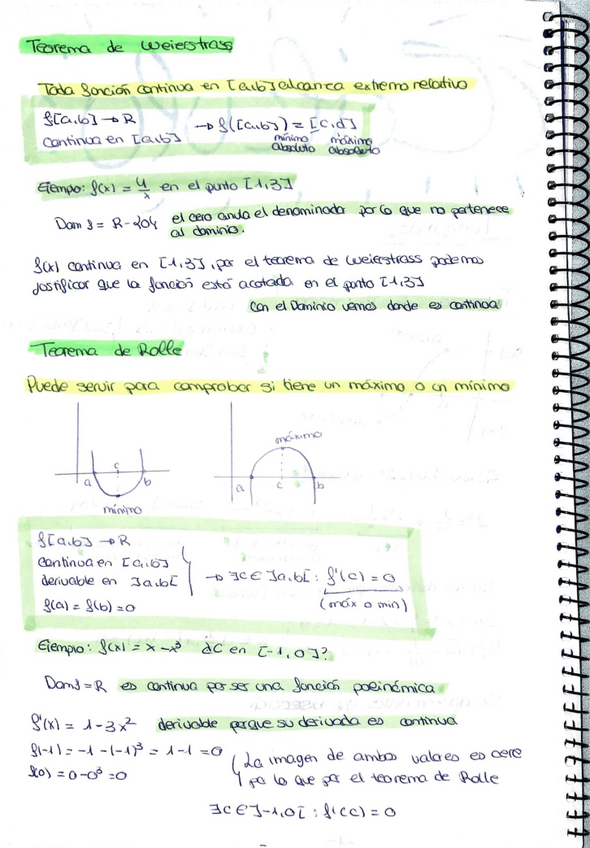 Teorema de Weierstrass
Toda función continua en [a,b] alcanza extremo relativo
f[a,b] → R
continua en [a,b]
→ f([a,b]) = [c,d]
mínimo absoluto
máximo absoluto
Ejemplo: f(x) = 4/x en el punto [1,3]
Dom f = R-{0} el cero anula el denominador por lo que no pertenece
al dominio.
f(x) continua en [1,3], por el teorema de Weierstrass podemos
justificar que la función está acotada en el punto [1,3]
Con el Dominio vemos donde es continua
Teorema de Rolle
Puede servir para comprobar si tiene un máximo o un mínimo
a c b
mínimo
máximo
a c b
f[a,b] → R
continua en [a,b]
derivable en ]a,b[
f(a) = f(b) = 0
→ ∃c ∈ ]a,b[ : f'(c) = 0
(máx o min)
Ejemplo: f(x) = x-x³ ¿C en [-1,0]?
Dom f = R es continua por ser una función polinómica
f'(x) = 1-3x² derivable porque su derivada es continua
f(-1) = -1-(-1)³ = 1-1 = 0
f(0) = 0-0³ = 0
La imagen de ambos valores es cero
por lo que por el teorema de Rolle
∃c ∈ ]-1,0[ : f'(c) = 0